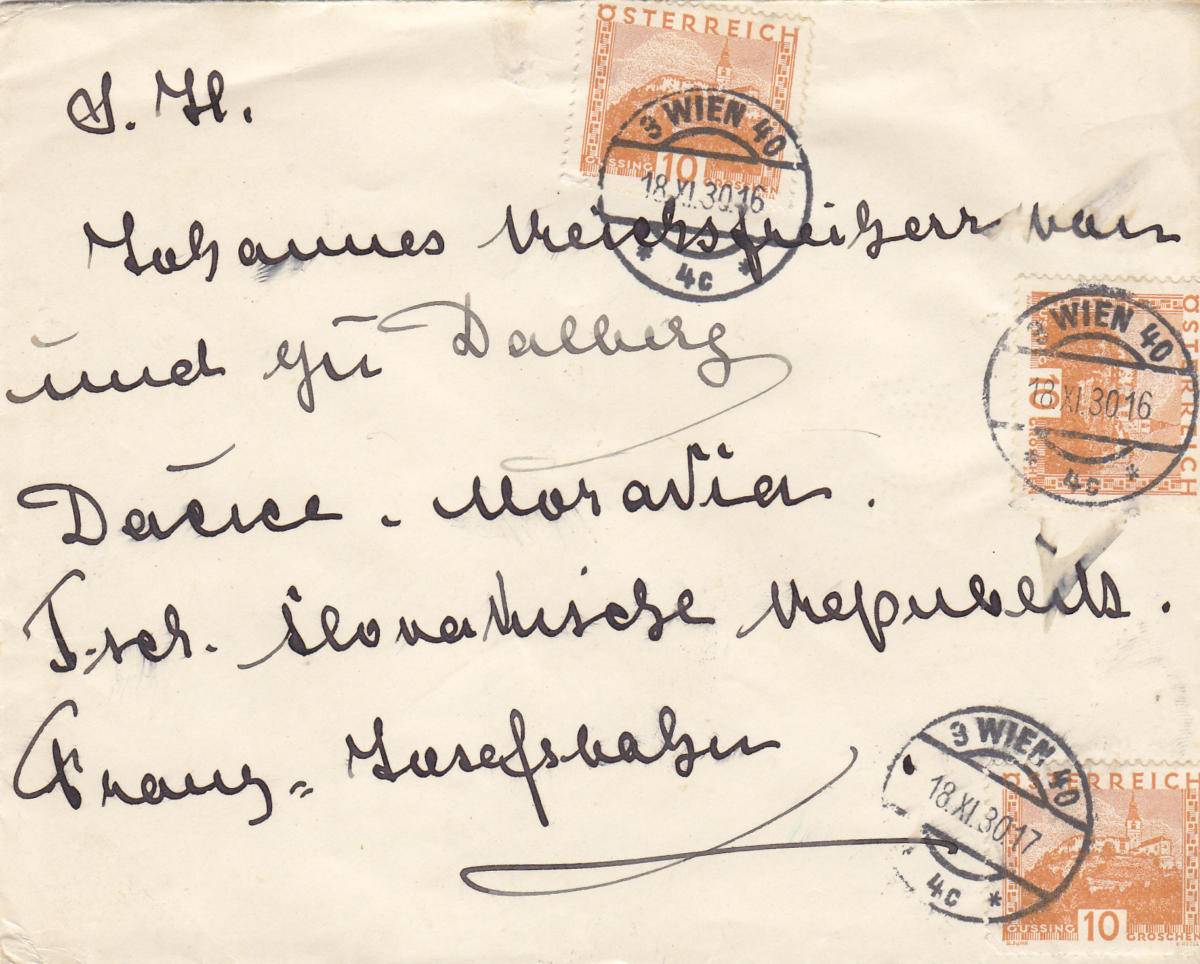 ÖSTERREICH
GÜSSING 10 GROSCHEN
3 WIEN 40
18.XI.30.16
* 4c *
S. H.
Johannes Reichsfreiherr von
und zu Dalberg
ÖSTERREICH
10
3 WIEN 40
18.XI.30 16
* 4c *
Dačice . Moravia .
Tsch. slovakische Republik .
Franz = Josefsbahn
3 WIEN 40
18.XI.30 17
* 4c *
ÖSTERREICH
GÜSSING 10 GROSCHEN